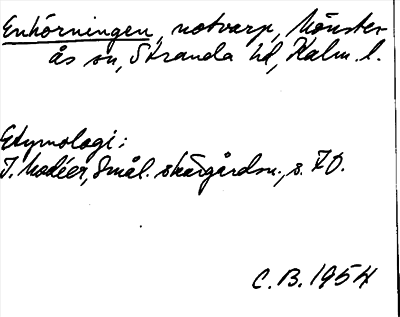 Enhörningen, notvarp, Mönster-
ås sn, Stranda hd, Kalm. l.
Etymologi:
I. Modéer, Smål. skärgårdsn., s. 70.
C.B. 1954